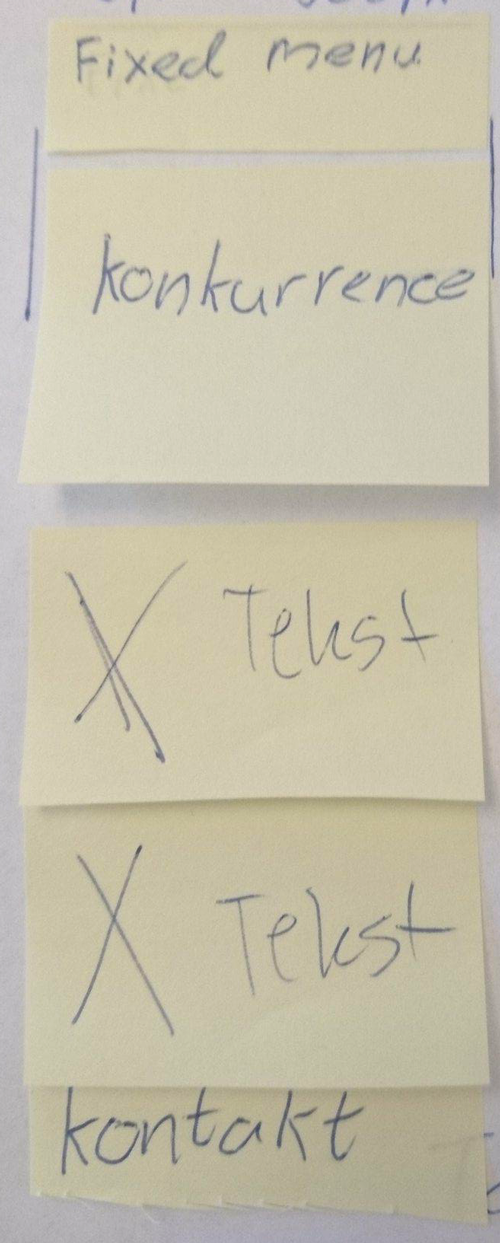 Fixed menu
konkurrence
X Tekst
X Tekst
kontakt